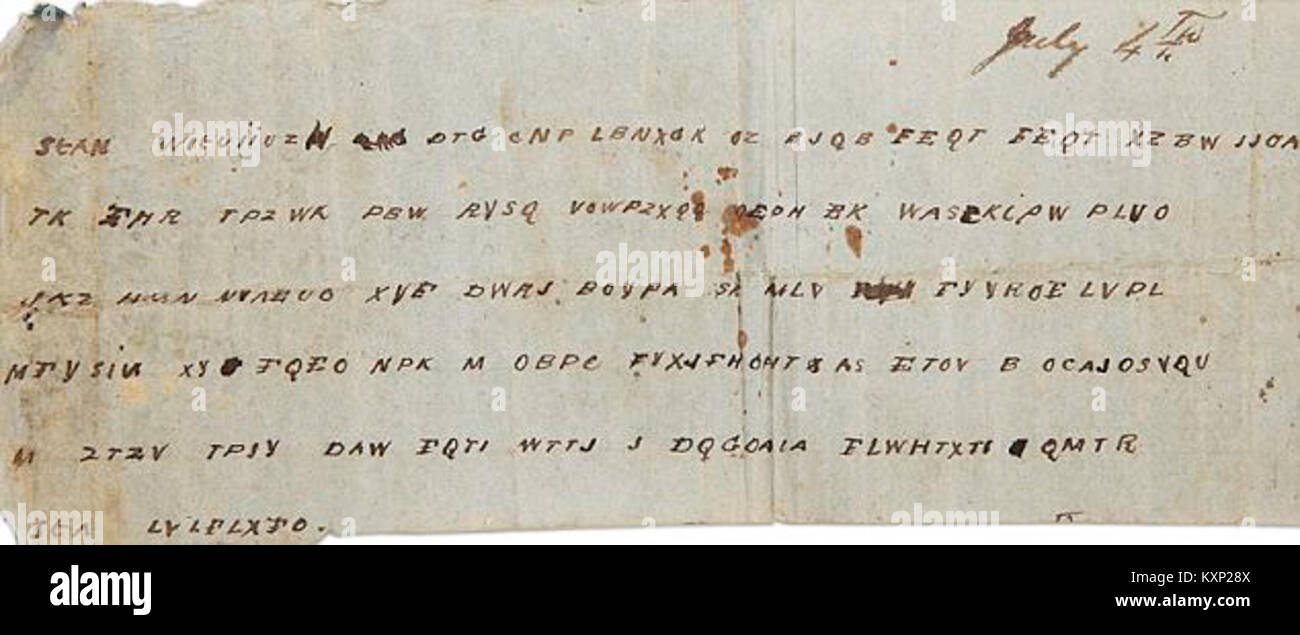 July 4th
SEAN WIEUIIUZH DTG CNP LBNXGK OZ BJQB FEQT FEQT XZBW JJOA
TK FHR TPZWK PBW RVSQ VOWPZXGG OEPH EK WASFKIPW PLVO
JKZ HMN NVAEUD XYE DWRJ BOYPA SK MLV FYYRDE LVPL
MFYSIN XY FQEO NPK M OBPC FYXJFHOHT AS ETOV B OCAJDSVQU
M ZTZV TPJY DAW FQTI WTTJ J DQGOAIA FLWHTXTI QMTR
SEA LVLFLXFO.
alamy
Image ID: KXP28X
www.alamy.com